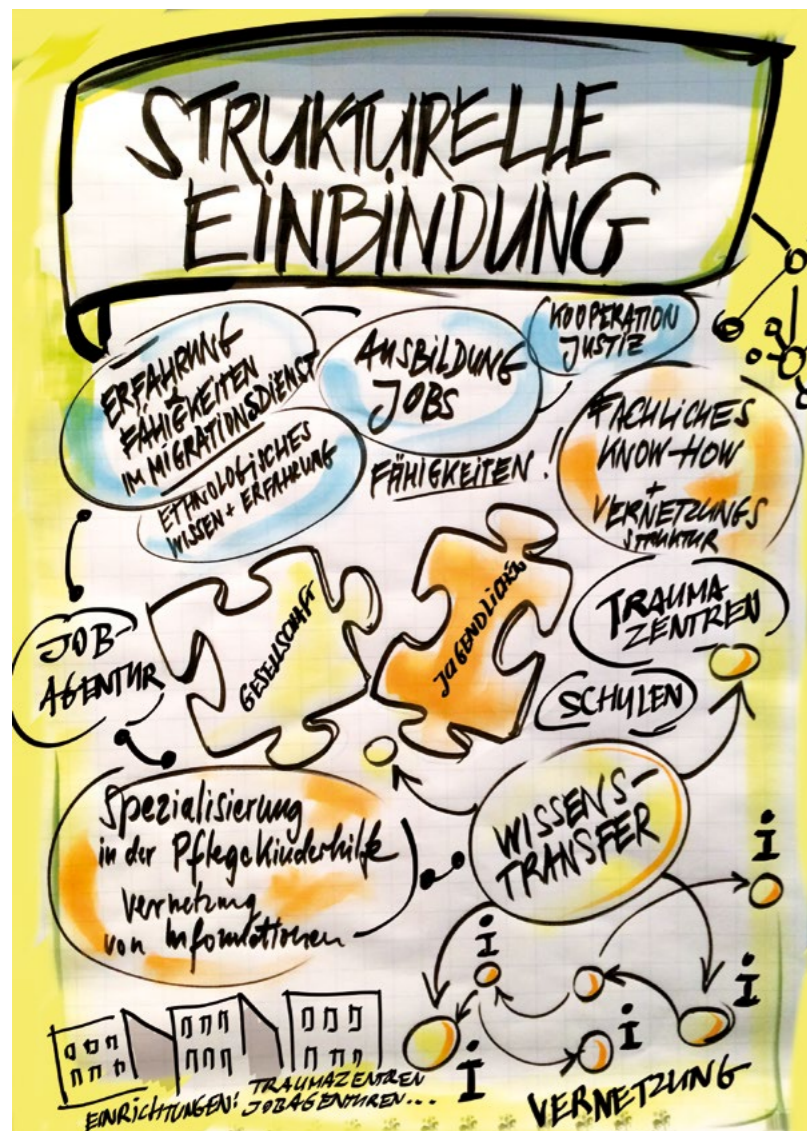 STRUKTURELLE
EINBINDUNG
ERFAHRUNG
+
FÄHIGKEITEN
IM MIGRATIONSDIENST
ETHNOLOGISCHES
WISSEN + ERFAHRUNG
AUSBILDUNG
JOBS
KOOPERATION
JUSTIZ
FÄHIGKEITEN!
FACHLICHES
KNOW-HOW
+
VERNETZUNGS
STRUKTUR
JOB-
AGENTUR
GESELLSCHAFT
JUGENDLICHER
TRAUMA
ZENTREN
SCHULEN
Spezialisierung
in der Pflegekinderhilfe
Vernetzung
von Informationen
WISSENS-
TRANSFER
i
i
i
i
i
VERNETZUNG
EINRICHTUNGEN: TRAUMAZENTREN
JOBAGENTUREN...